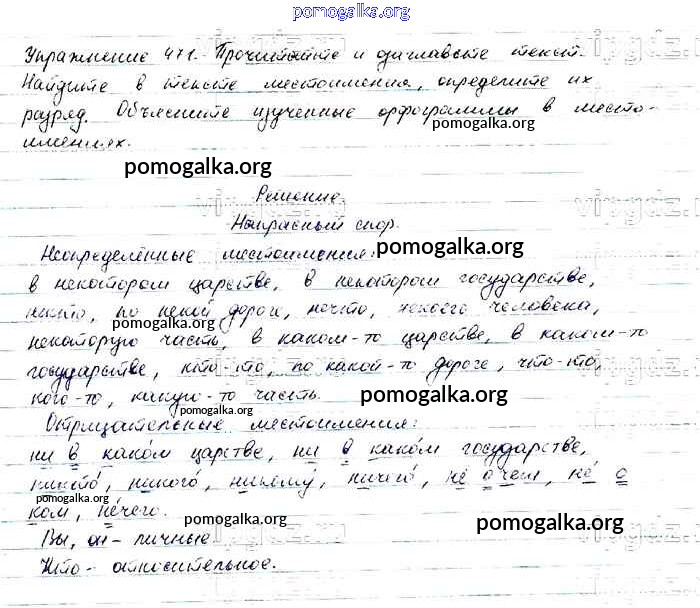 pomogalka.org
Упражнение 471. Прочитайте и озаглавьте текст.
Найдите в тексте местоимения, определите их
разряд. Объясните изученные орфограммы в место-
pomogalka.org
имениях.
pomogalka.org
Решение.
Напрасный спор.
Неопределённые местоимения:
pomogalka.org
в некотором царстве, в некотором государстве,
некто, по некой дороге, нечто, некоего человека,
pomogalka.org
некоторую часть, в каком-то царстве, в каком-то
государстве, кто-то, по какой-то дороге, что-то,
кого-то, какую-то часть.
pomogalka.org
pomogalka.org
Отрицательные местоимения:
ни в како́м царстве, ни в како́м государстве,
никто́, никого́, никому́, ничего́, не́ о чем, не́ с
pomogalka.org
ком, не́чего.
pomogalka.org
pomogalka.org
Вы, он - личные.
Что - относительное.